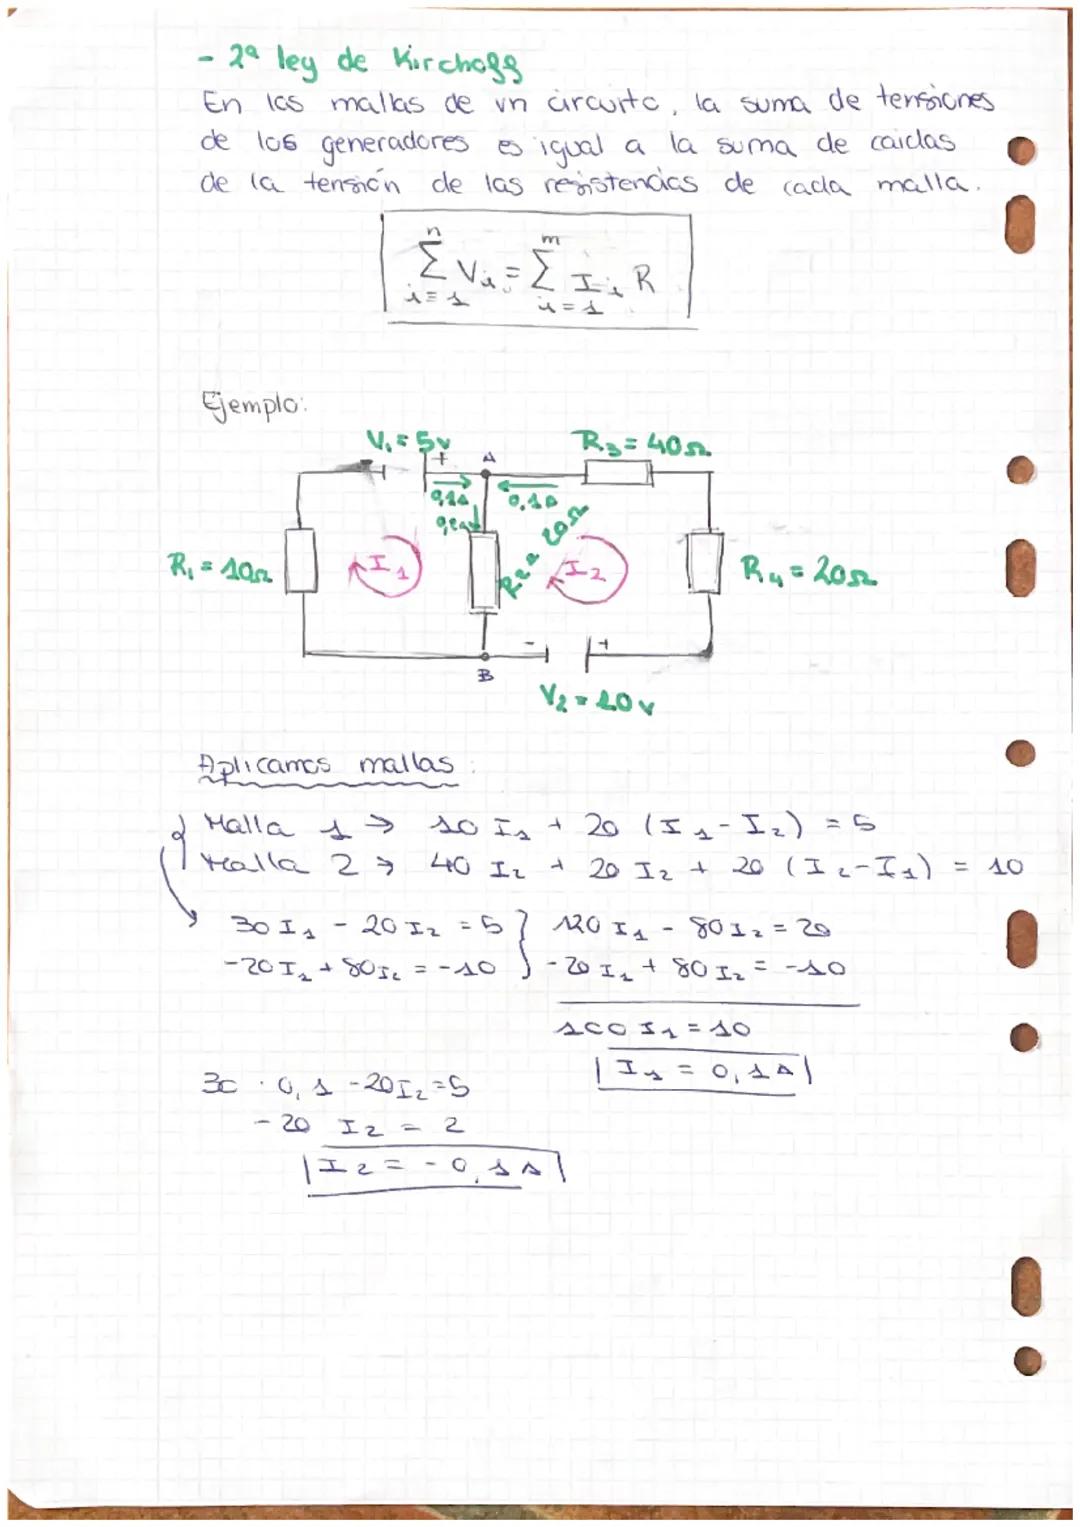 - 2ª ley de Kirchoff
En las mallas de un circuito, la suma de tensiones
de los generadores es igual a la suma de caidas
de la tensión de las resistencias de cada malla.
n ∑ i=1 Vi = m ∑ i=1 Ii R
Ejemplo:
V₁ = 5v
R₃ = 40Ω
+
A
0,1A
0,1A
0,2A
R₁ = 10Ω
I₁
R₂ = 20Ω
I₂
R₄ = 20Ω
- +
B
V₂ = 10v
Aplicamos mallas:
Malla 1 → 10 I₁ + 20 (I₁ - I₂) = 5
Malla 2 → 40 I₂ + 20 I₂ + 20 (I₂ - I₁) = 10
30 I₁ - 20 I₂ = 5 } 120 I₁ - 80 I₂ = 20
-20 I₁ + 80 I₂ = -10 } -20 I₁ + 80 I₂ = -10
100 I₁ = 10
I₁ = 0,1A
30 · 0,1 - 20 I₂ = 5
- 20 I₂ = 2
I₂ = - 0,1A